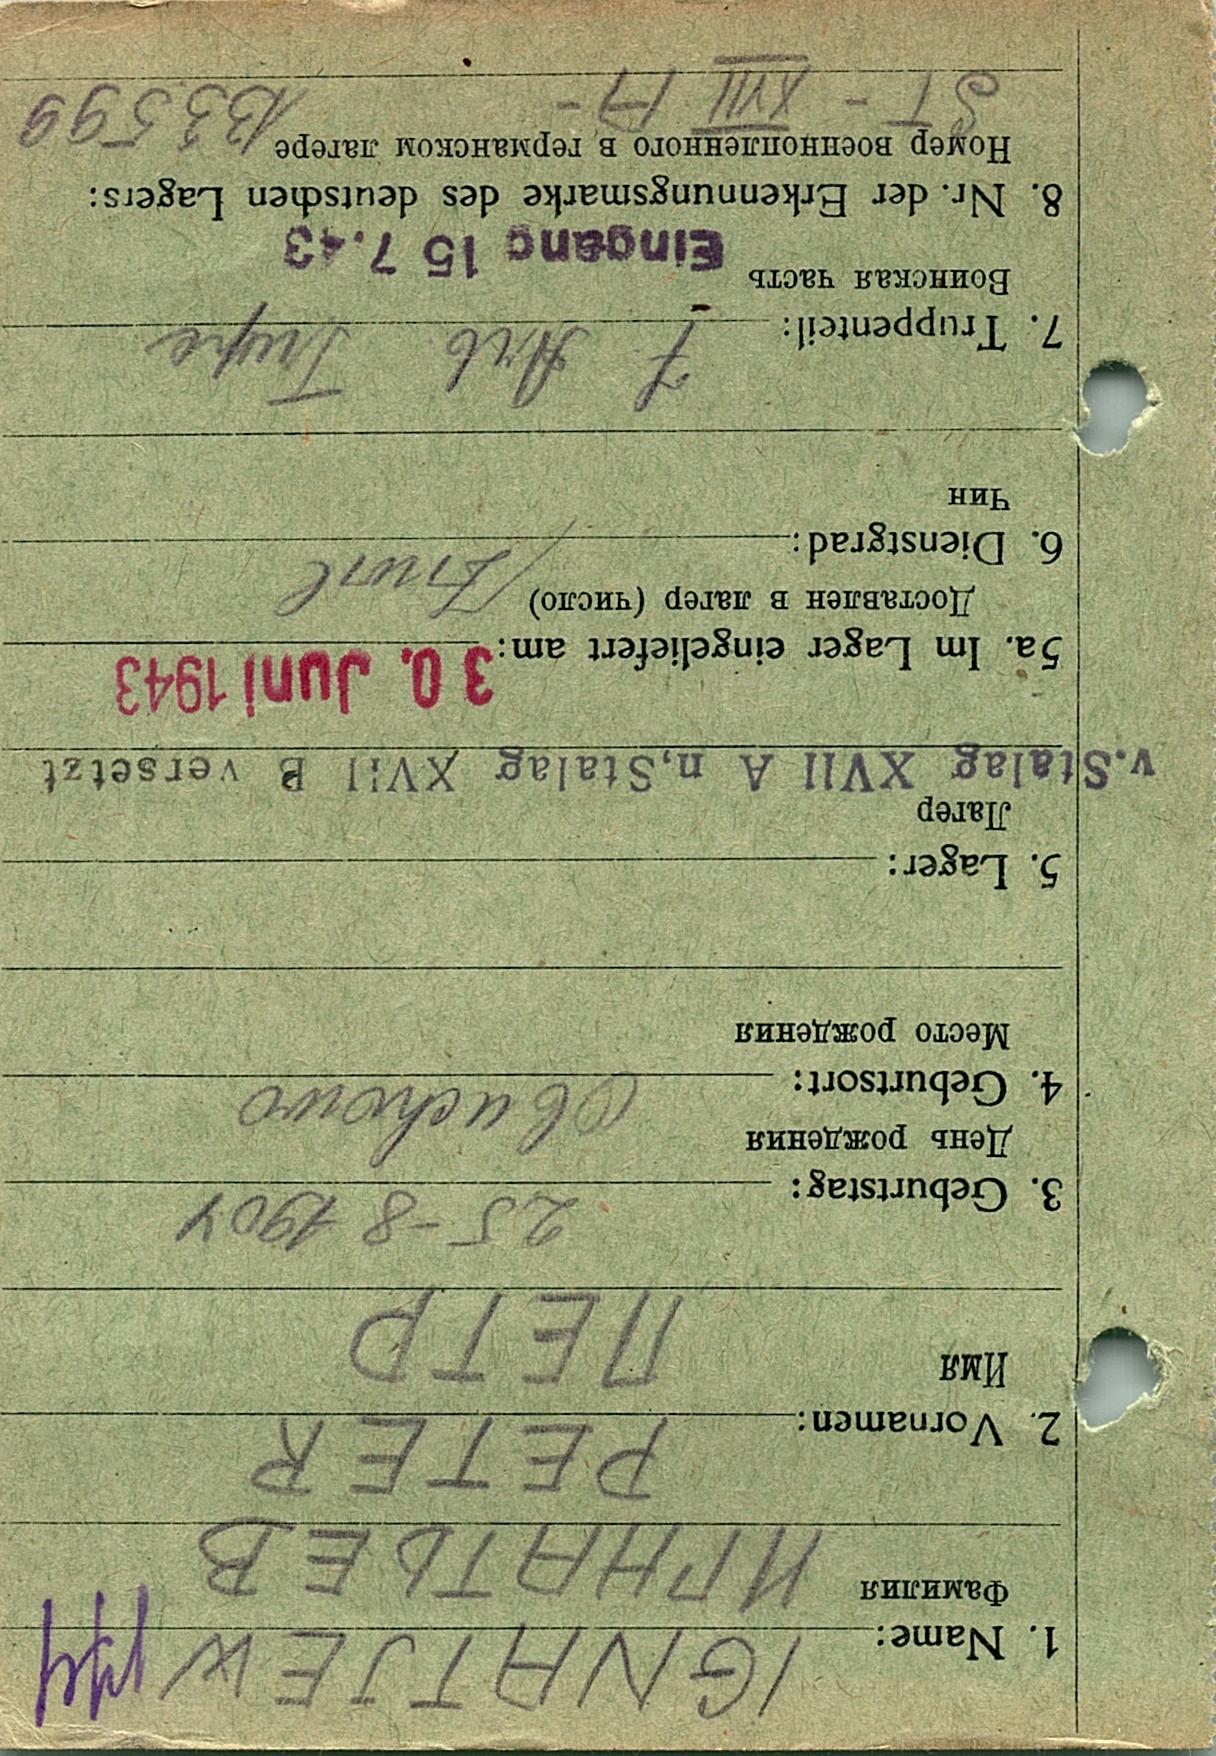 1. Name: IGNATJEW
Фамилия ИГНАТЬЕВ
PETER
2. Vornamen:
Имя ПЕТР
25-8 1904
3. Geburtstag:
День рождения
Obuchowo
4. Geburtsort:
Место рождения
5. Lager:
Лагер
v.Stalag XVII A n,Stalag XVII B versetzt
30. Juni 1943
5a. Im Lager eingeliefert am:
Доставлен в лагер (число)
6. Dienstgrad:
Чин
7 Arb
7. Truppenteil:
Воинская часть
Eingang 15 7.43
8. Nr. der Erkennungsmarke des deutschen Lagers:
Номер военнопленного в германском лагере 133599
ST - XVII A -